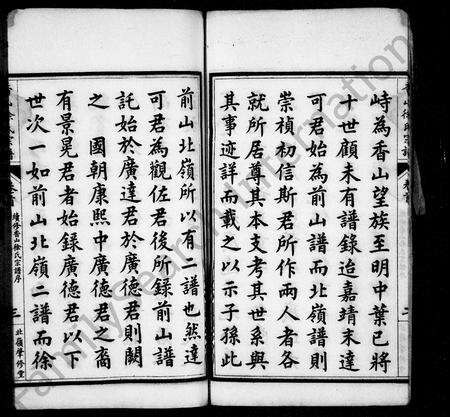 峙為香山望族至明中葉已將
十世顧未有譜錄迨嘉靖末達
可君始為前山譜而北嶺譜則
崇禎初信斯君所作兩人者各
就所居尊其本支考其世系與
其事迹詳而載之以示子孫此
二
前山北嶺所以有二譜也然達
可君為觀佐君後所錄前山譜
託始於廣達君於廣德君則闕
之 國朝康熙中廣德君之裔
有景晃君者始錄廣德君以下
世次一如前山北嶺二譜而徐
續修香山徐氏宗譜序
三
北嶺肇修堂
FamilySearch International